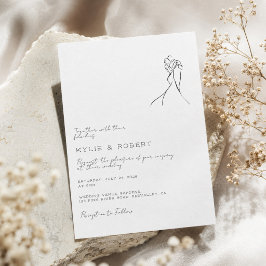 Together with their
families
KYLIE & ROBERT
Request the pleasure of your company
at their wedding
SATURDAY, JULY
AT
WEDDING VENUE GARDENS
Reception to Follow